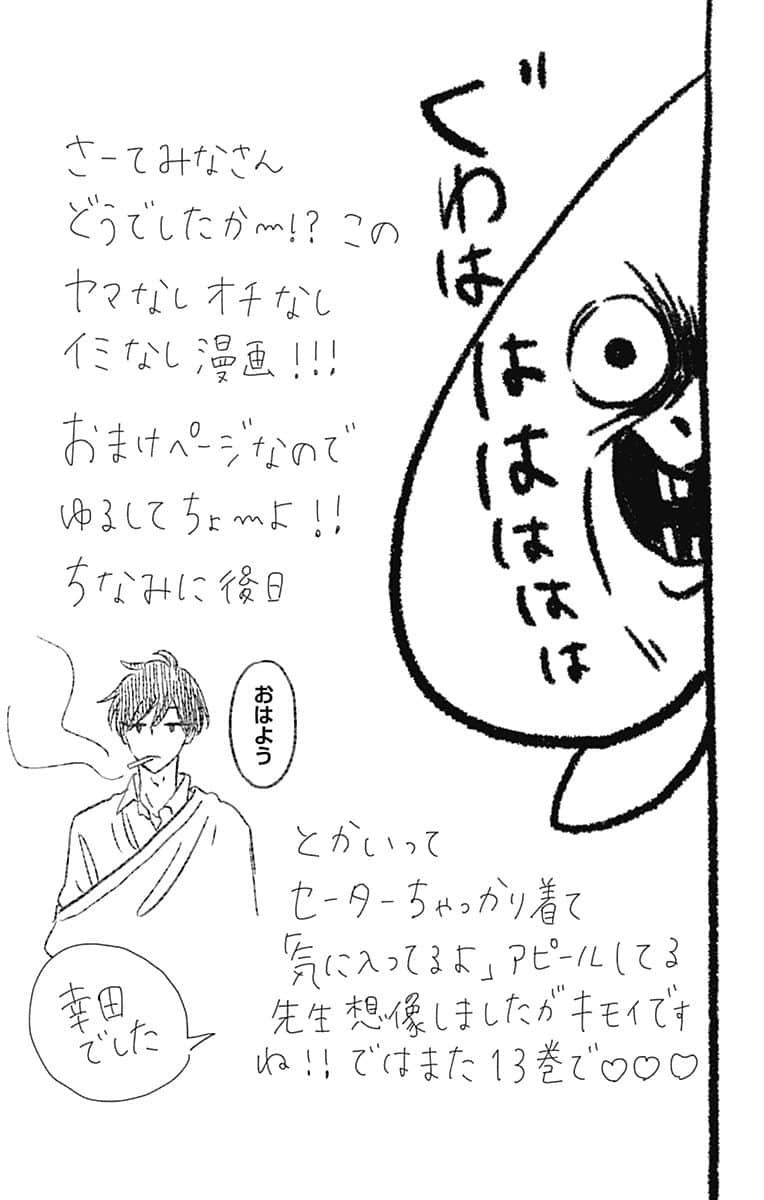 ぐわははははははは
さーてみなさん
どうでしたか〜!? この
ヤマなしオチなし
イミなし漫画!!!
おまけページなので
ゆるしてちょ〜よ!!
ちなみに後日
おはよう
とかいって
セーターちゃっかり着て
「気に入ってるよ」アピールしてる
先生想像しましたがキモイです
ね!! ではまた13巻で♡♡♡
幸田
でした